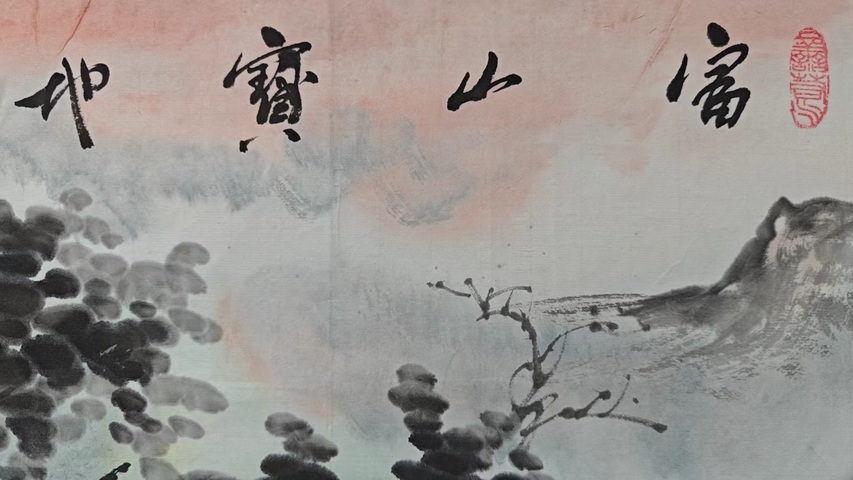 富山寶地